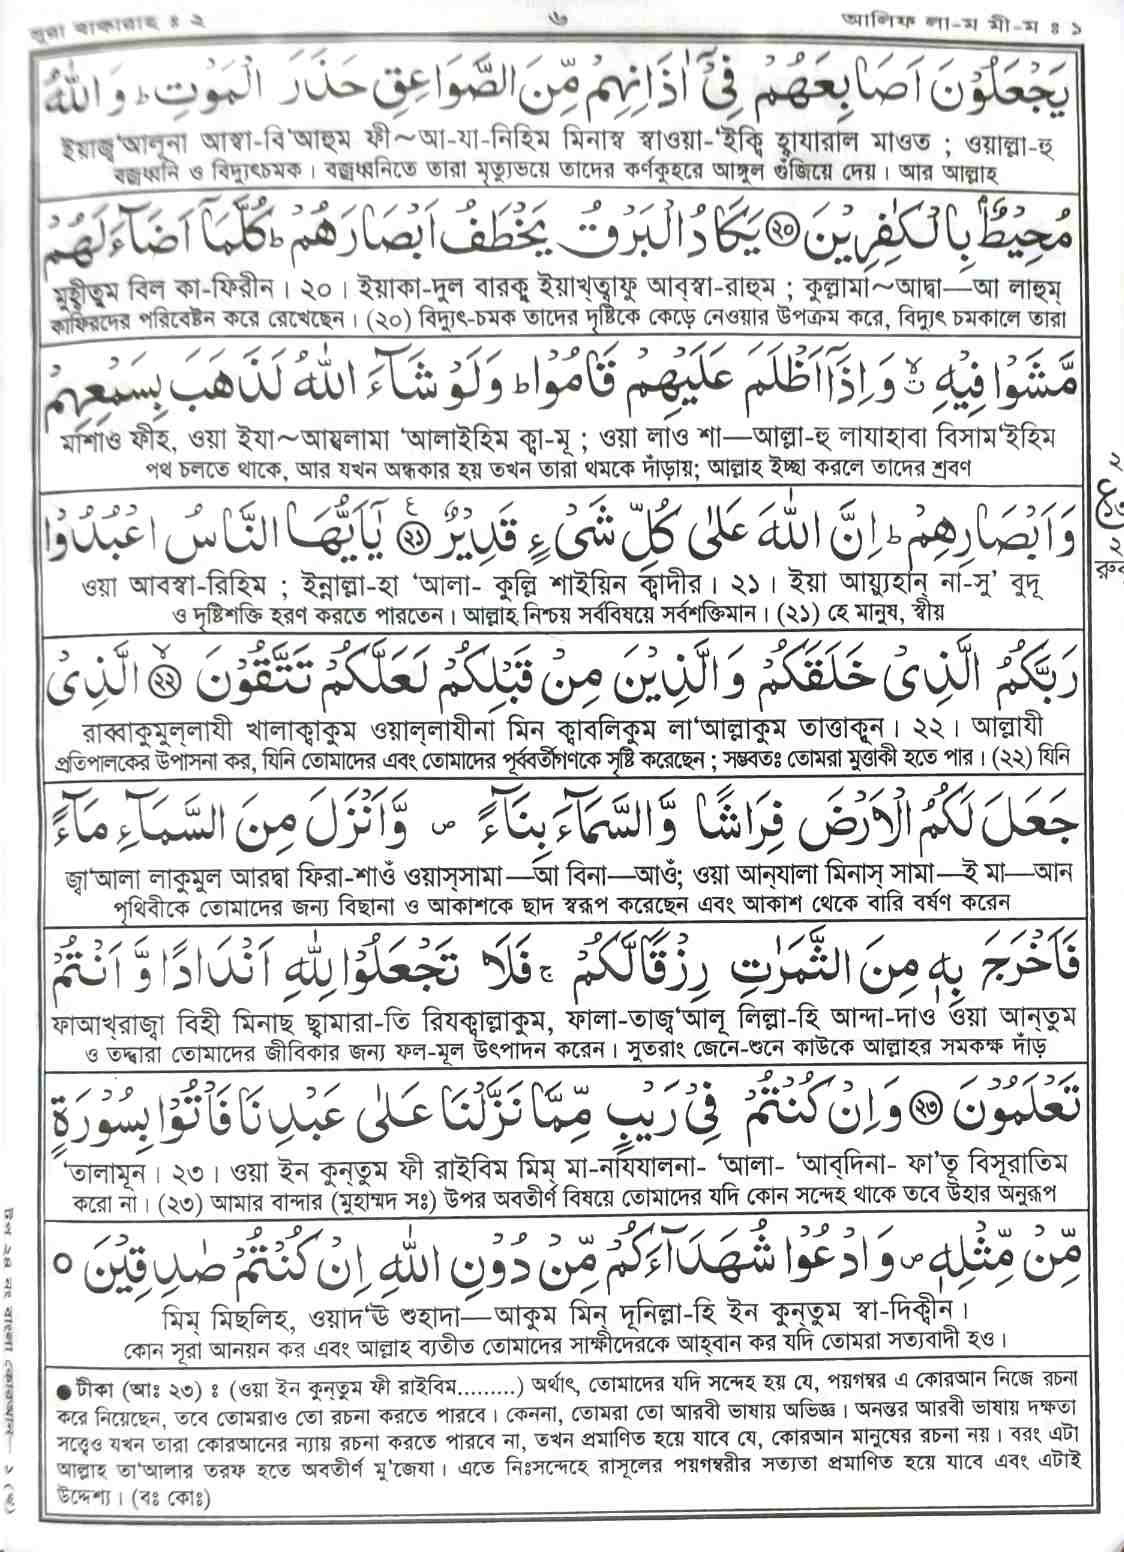 সূরা বাকারাহ্ ঃ ২ ৬ আলিফ লা-ম মী-ম ঃ ১
يَجْعَلُوْنَ اَصَابِعَهُمْ فِيْٓ اٰذَانِهِمْ مِّنَ الصَّوَاعِقِ حَذَرَ الْمَوْتِ ؕ وَاللّٰهُ
ইয়াজ্ব‘আলূনা আস্বা-বি‘আহুম ফী~আ-যা-নিহিম মিনাস্ব স্বাওয়া-‘ইক্বি হ্বাযারাল মাওত ; ওয়াল্লা-হু
বজ্রধ্বনি ও বিদ্যুৎচমক। বজ্রধ্বনিতে তারা মৃত্যুভয়ে তাদের কর্ণকুহরে আঙ্গুল গুঁজিয়ে দেয়। আর আল্লাহ
مُحِيْطٌۢ بِالْكٰفِرِيْنَ ﴿٢٠﴾ يَكَادُ الْبَرْقُ يَخْطَفُ اَبْصَارَهُمْ ؕ كُلَّمَآ اَضَآءَ لَهُمْ
মুহ্বীতুম বিল কা-ফিরীন। ২০। ইয়াকা-দুল বারক্বু ইয়াখ্ত্বাফু আব্স্বা-রাহুম ; কুল্লামা~আদ্বা—আ লাহুম্
কাফিরদের পরিবেষ্টন করে রেখেছেন। (২০) বিদ্যুৎ-চমক তাদের দৃষ্টিকে কেড়ে নেওয়ার উপক্রম করে, বিদ্যুৎ চমকালে তারা
مَّشَوْا فِيْهِ ۙ وَاِذَآ اَظْلَمَ عَلَيْهِمْ قَامُوْا ؕ وَلَوْ شَآءَ اللّٰهُ لَذَهَبَ بِسَمْعِهِمْ
মাশাও ফীহ, ওয়া ইযা~আয্বলামা ‘আলাইহিম ক্বা-মূ ; ওয়া লাও শা—আল্লা-হু লাযাহাবা বিসাম‘ইহিম
পথ চলতে থাকে, আর যখন অন্ধকার হয় তখন তারা থমকে দাঁড়ায়; আল্লাহ ইচ্ছা করলে তাদের শ্রবণ
وَاَبْصَارِهِمْ ؕ اِنَّ اللّٰهَ عَلٰى كُلِّ شَيْءٍ قَدِيْرٌ ﴿٢١﴾ يٰٓاَيُّهَا النَّاسُ اعْبُدُوْا
ওয়া আবস্বা-রিহিম ; ইন্নাল্লা-হা ‘আলা- কুল্লি শাইয়িন ক্বাদীর। ২১। ইয়া আয়্যুহান্ না-সু’ বুদূ
ও দৃষ্টিশক্তি হরণ করতে পারতেন। আল্লাহ্ নিশ্চয় সর্ববিষয়ে সর্বশক্তিমান। (২১) হে মানুষ, স্বীয়
২
ع
২
رَبَّكُمُ الَّذِيْ خَلَقَكُمْ وَالَّذِيْنَ مِنْ قَبْلِكُمْ لَعَلَّكُمْ تَتَّقُوْنَ ۙ﴿٢٢﴾ الَّذِيْ
রাব্বাকুমুল্লাযী খালাক্বাকুম ওয়াল্লাযীনা মিন ক্বাবলিকুম লা‘আল্লাকুম তাত্তাক্বূন। ২২। আল্লাযী
প্রতিপালকের উপাসনা কর, যিনি তোমাদের এবং তোমাদের পূর্ববর্তীগণকে সৃষ্টি করেছেন ; সম্ভবতঃ তোমরা মুত্তাকী হতে পার। (২২) যিনি
جَعَلَ لَكُمُ الْاَرْضَ فِرَاشًا وَّالسَّمَآءَ بِنَآءً ۪ وَّاَنْزَلَ مِنَ السَّمَآءِ مَآءً
জ্বা‘আলা লাকুমুল আরদ্বা ফিরা-শাওঁ ওয়াস্সামা—আ বিনা—আওঁ; ওয়া আন্যালা মিনাস্ সামা—ই মা—আন
পৃথিবীকে তোমাদের জন্য বিছানা ও আকাশকে ছাদ স্বরূপ করেছেন এবং আকাশ থেকে বারি বর্ষণ করেন
فَاَخْرَجَ بِهٖ مِنَ الثَّمَرٰتِ رِزْقًا لَّكُمْ ۚ فَلَا تَجْعَلُوْا لِلّٰهِ اَنْدَادًا وَّاَنْتُمْ
ফাআখ্রাজ্বা বিহী মিনাছ ছ্বামারা-তি রিযক্বাল্লাকুম, ফালা-তাজ্ব‘আলূ লিল্লা-হি আন্দা-দাও ওয়া আন্তুম
ও তদ্দ্বারা তোমাদের জীবিকার জন্য ফল-মূল উৎপাদন করেন। সুতরাং জেনে-শুনে কাউকে আল্লাহর সমকক্ষ দাঁড়
تَعْلَمُوْنَ ﴿٢٣﴾ وَاِنْ كُنْتُمْ فِيْ رَيْبٍ مِّمَّا نَزَّلْنَا عَلٰى عَبْدِنَا فَاْتُوْا بِسُوْرَةٍ
‘তালামূন। ২৩। ওয়া ইন কুন্তুম ফী রাইবিম মিম্ মা-নায্যালনা- ‘আলা- ‘আব্দিনা- ফা’তূ বিসূরাতিম
করো না। (২৩) আমার বান্দার (মুহাম্মদ সঃ) উপর অবতীর্ণ বিষয়ে তোমাদের যদি কোন সন্দেহ থাকে তবে উহার অনুরূপ
مِّنْ مِّثْلِهٖ ۪ وَادْعُوْا شُهَدَآءَكُمْ مِّنْ دُوْنِ اللّٰهِ اِنْ كُنْتُمْ صٰدِقِيْنَ ○
মিম্ মিছলিহ, ওয়াদ‘ঊ শুহাদা—আকুম মিন্ দূনিল্লা-হি ইন কুন্তুম স্বা-দিক্বীন।
কোন সূরা আনয়ন কর এবং আল্লাহ ব্যতীত তোমাদের সাক্ষীদেরকে আহ্বান কর যদি তোমরা সত্যবাদী হও।
● টীকা (আঃ ২৩) ঃ (ওয়া ইন কুন্তুম ফী রাইবিম.........) অর্থাৎ, তোমাদের যদি সন্দেহ হয় যে, পয়গম্বর এ কোরআন নিজে রচনা
করে নিয়েছেন, তবে তোমরাও তো রচনা করতে পারবে। কেননা, তোমরা তো আরবী ভাষায় অভিজ্ঞ। অনন্তর আরবী ভাষায় দক্ষতা
সত্ত্বেও যখন তারা কোরআনের ন্যায় রচনা করতে পারবে না, তখন প্রমাণিত হয়ে যাবে যে, কোরআন মানুষের রচনা নয়। বরং এটা
আল্লাহ তা'আলার তরফ হতে অবতীর্ণ মু'জেযা। এতে নিঃসন্দেহে রাসূলের পয়গম্বরীর সত্যতা প্রমাণিত হয়ে যাবে এবং এটাই
উদ্দেশ্য। (বঃ কোঃ)